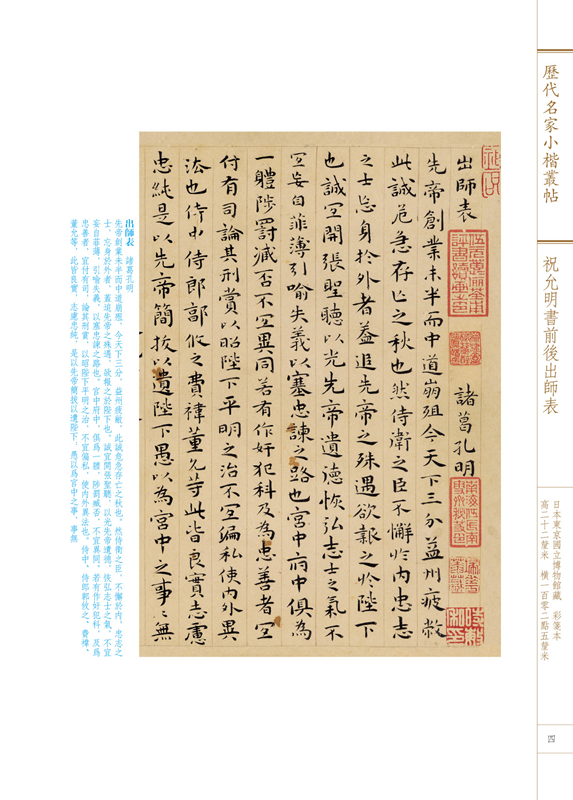 歷代名家小楷叢帖
祝允明書前後出師表
日本東京國立博物館藏 彩箋本
高二十二釐米 橫一百零二點五釐米
四
出師表 諸葛孔明
先帝創業未半而中道崩殂今天下三分益州疲敝
此誠危急存亡之秋也然侍衛之臣不懈於内忠志
之士忘身於外者蓋追先帝之殊遇欲報之於陛下
也誠宜開張聖聽以光先帝遺德恢弘志士之氣不
宜妄自菲薄引喻失義以塞忠諫之路也宮中府中俱為
一體陟罰臧否不宜異同若有作奸犯科及為忠善者宜
付有司論其刑賞以昭陛下平明之治不宜偏私使内外異
法也侍中侍郎郭攸之費禕董允等此皆良實志慮
忠純是以先帝簡拔以遺陛下愚以為宮中之事〻無
出師表 諸葛孔明
先帝創業未半而中道崩殂。今天下三分，益州疲敝，此誠危急存亡之秋也。然侍衛之臣，不懈於内，忠志之
士，忘身於外者，蓋追先帝之殊遇，欲報之於陛下也。誠宜開張聖聽，以光先帝遺德，恢弘志士之氣，不宜
妄自菲薄，引喻失義，以塞忠諫之路也。宮中府中，俱爲一體，陟罰臧否，不宜異同。若有作奸犯科，及爲
忠善者，宜付有司，論其刑賞，以昭陛下平明之治，不宜偏私，使内外異法也。侍中、侍郎郭攸之、費禕、
董允等，此皆良實，志慮忠純，是以先帝簡拔以遺陛下。愚以爲宮中之事，事無